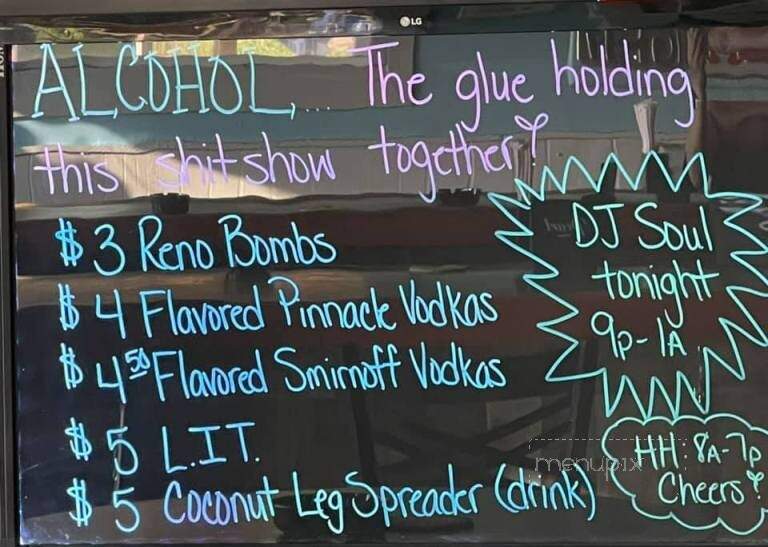 LG
ALCOHOL... The glue holding
this shitshow together!
$3 Reno Bombs
$4 Flavored Pinnacle Vodkas
$4.50 Flavored Smirnoff Vodkas
$5 L.I.T.
$5 Coconut Leg Spreader (drink)
DJ Soul
tonight
9p-1A
HH: 8A-7p
Cheers!
menupix